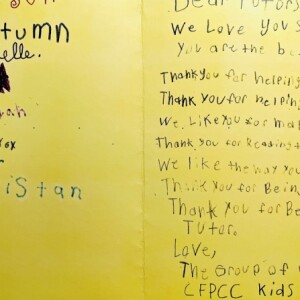 tumn
elle.
Tistan
Dear Tutors
We Love You
You are the be
Thank you for helping
Thank you for helping
We Like You for ma
Thank you for Reading t
We like the way you
Thank you for Being
Thank You for Be
Tutor.
Love,
The Group of
CFPCC Kids